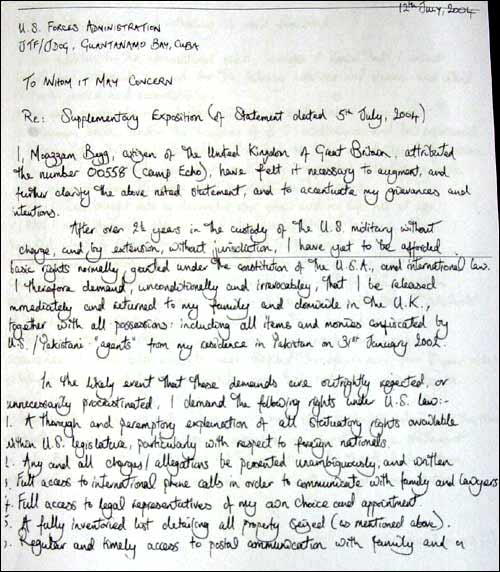 12th July, 2004
U.S. FORCES ADMINISTRATION
JTF/JDOG, GUANTANAMO BAY, CUBA
TO WHOM IT MAY CONCERN
Re: Supplementary Exposition (of Statement dated 5th July, 2004)
I, Moazzam Begg, citizen of the United Kingdom of Great Britain, attributed
the number 00558 (Camp Echo), have felt it necessary to augment, and
further clarify the above noted statement, and to accentuate my grievances and
intentions.
After over 2½ years in the custody of the U.S. military without
charge, and by extension, without jurisdiction, I have yet to be afforded
basic rights normally granted under the constitution of the U.S.A., and international law.
I therefore demand, unconditionally and irrevocably, that I be released
immediately and returned to my family and domicile in the U.K.,
together with all possessions: including all items and monies confiscated by
U.S./Pakistani "agents" from my residence in Pakistan on 31st January 2002.
In the likely event that these demands are outrightly rejected, or
unnecessarily procrastinated, I demand the following rights under U.S. law:-
1. A thorough and peremptory explanation of all statutory rights available
within U.S. legislature, particularly with respect to foreign nationals.
2. Any and all charges/allegations be presented unambiguously, and written
3. Full access to international phone calls in order to communicate with family and lawyers
4. Full access to legal representatives of my own choice and appointment.
5. A fully inventoried list detailing all property seized (as mentioned above).
Regular and timely access to postal communication with family and